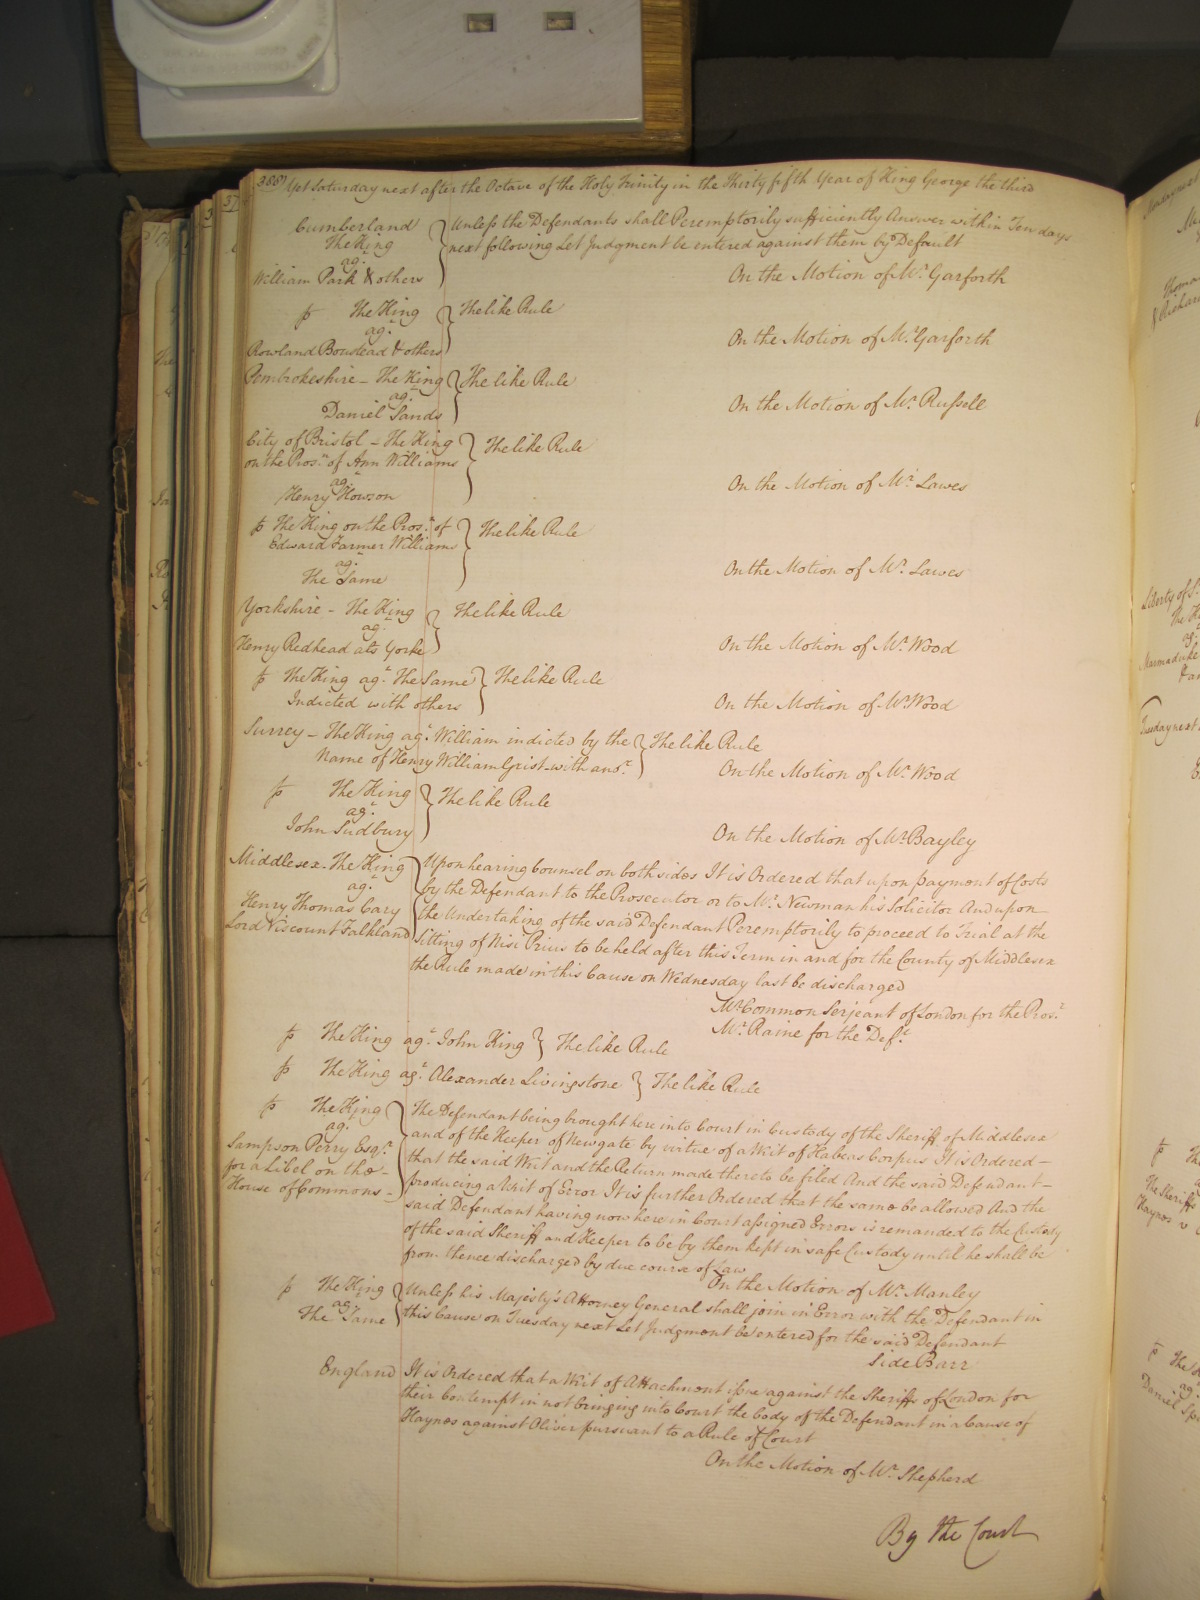 388
Yet Saturday next after the Octave of the Holy Trinity in the Thirty fifth Year of King George the third
Cumberland
The King
agt.
William Park & others
Unless the Defendants shall Peremptorily sufficiently Answer within Ten days
next following Let Judgment be entered against them by Default
On the Motion of Mr. Garforth
The King
agt.
Rowland Boustead & others
The like Rule
On the Motion of Mr. Garforth
Pembrokeshire – The King
agt.
Daniel Sands
The like Rule
On the Motion of Mr. Russell
City of Bristol – The King
on the Prosn. of Ann Williams
agt.
Henry Howson
The like Rule
On the Motion of Mr. Lawes
The King on the Prosn. of
Edward Farmer Williams
agt.
The Same
The like Rule
On the Motion of Mr. Lawes
Yorkshire – The King
agt.
Henry Redhead ats Yorke
The like Rule
On the Motion of Mr. Wood
The King agt. The Same
Indicted with others
The like Rule
On the Motion of Mr. Wood
Surrey – The King agt. William indicted by the
Name of Henry William Grist with anor.
The like Rule
On the Motion of Mr. Wood
The King
agt.
John Sudbury
The like Rule
On the Motion of Mr. Bayley
Middlesex – The King
agt.
Henry Thomas Cary
Lord Viscount Falkland
Upon hearing Counsel on both sides It is Ordered that upon payment of Costs
by the Defendant to the Prosecutor or to Mr. Newman his Solicitor And upon
the Undertaking of the said Defendant Peremptorily to proceed to Trial at the
Sitting of Nisi Prius to be held after this Term in and for the County of Middlesex
the Rule made in this Cause on Wednesday last be discharged
Mr. Common Serjeant of London for the Prosr.
Mr. Raine for the Deft.
The King agt. John King The like Rule
The King agt. Alexander Livingstone The like Rule
The King
agt.
Sampson Perry Esqr.
for a Libel on the
House of Commons
The Defendant being brought here into Court in Custody of the Sheriff of Middlesex
and of the Keeper of Newgate by virtue of a Writ of Habeas Corpus It is Ordered
that the said Writ and the Return made thereto be filed And the said Defendant
producing a Writ of Error It is further Ordered that the same be allowed And the
said Defendant having now here in Court assigned Errors is remanded to the Custody
of the said Sheriff and Keeper to be by them kept in safe Custody until he shall be
from thence discharged by due course of Law
On the Motion of Mr. Manley
The King
agt.
The Same
Unless his Majesty's Attorney General shall join in Error with the Defendant in
this Cause on Tuesday next Let Judgment be entered for the said Defendant
Side Barr
England
It is Ordered that a Writ of Attachment issue against the Sheriffs of London for
their Contempt in not bringing into Court the body of the Defendant in a Cause of
Haynes against Oliver pursuant to a Rule of Court
On the Motion of Mr. Shepherd
By the Court